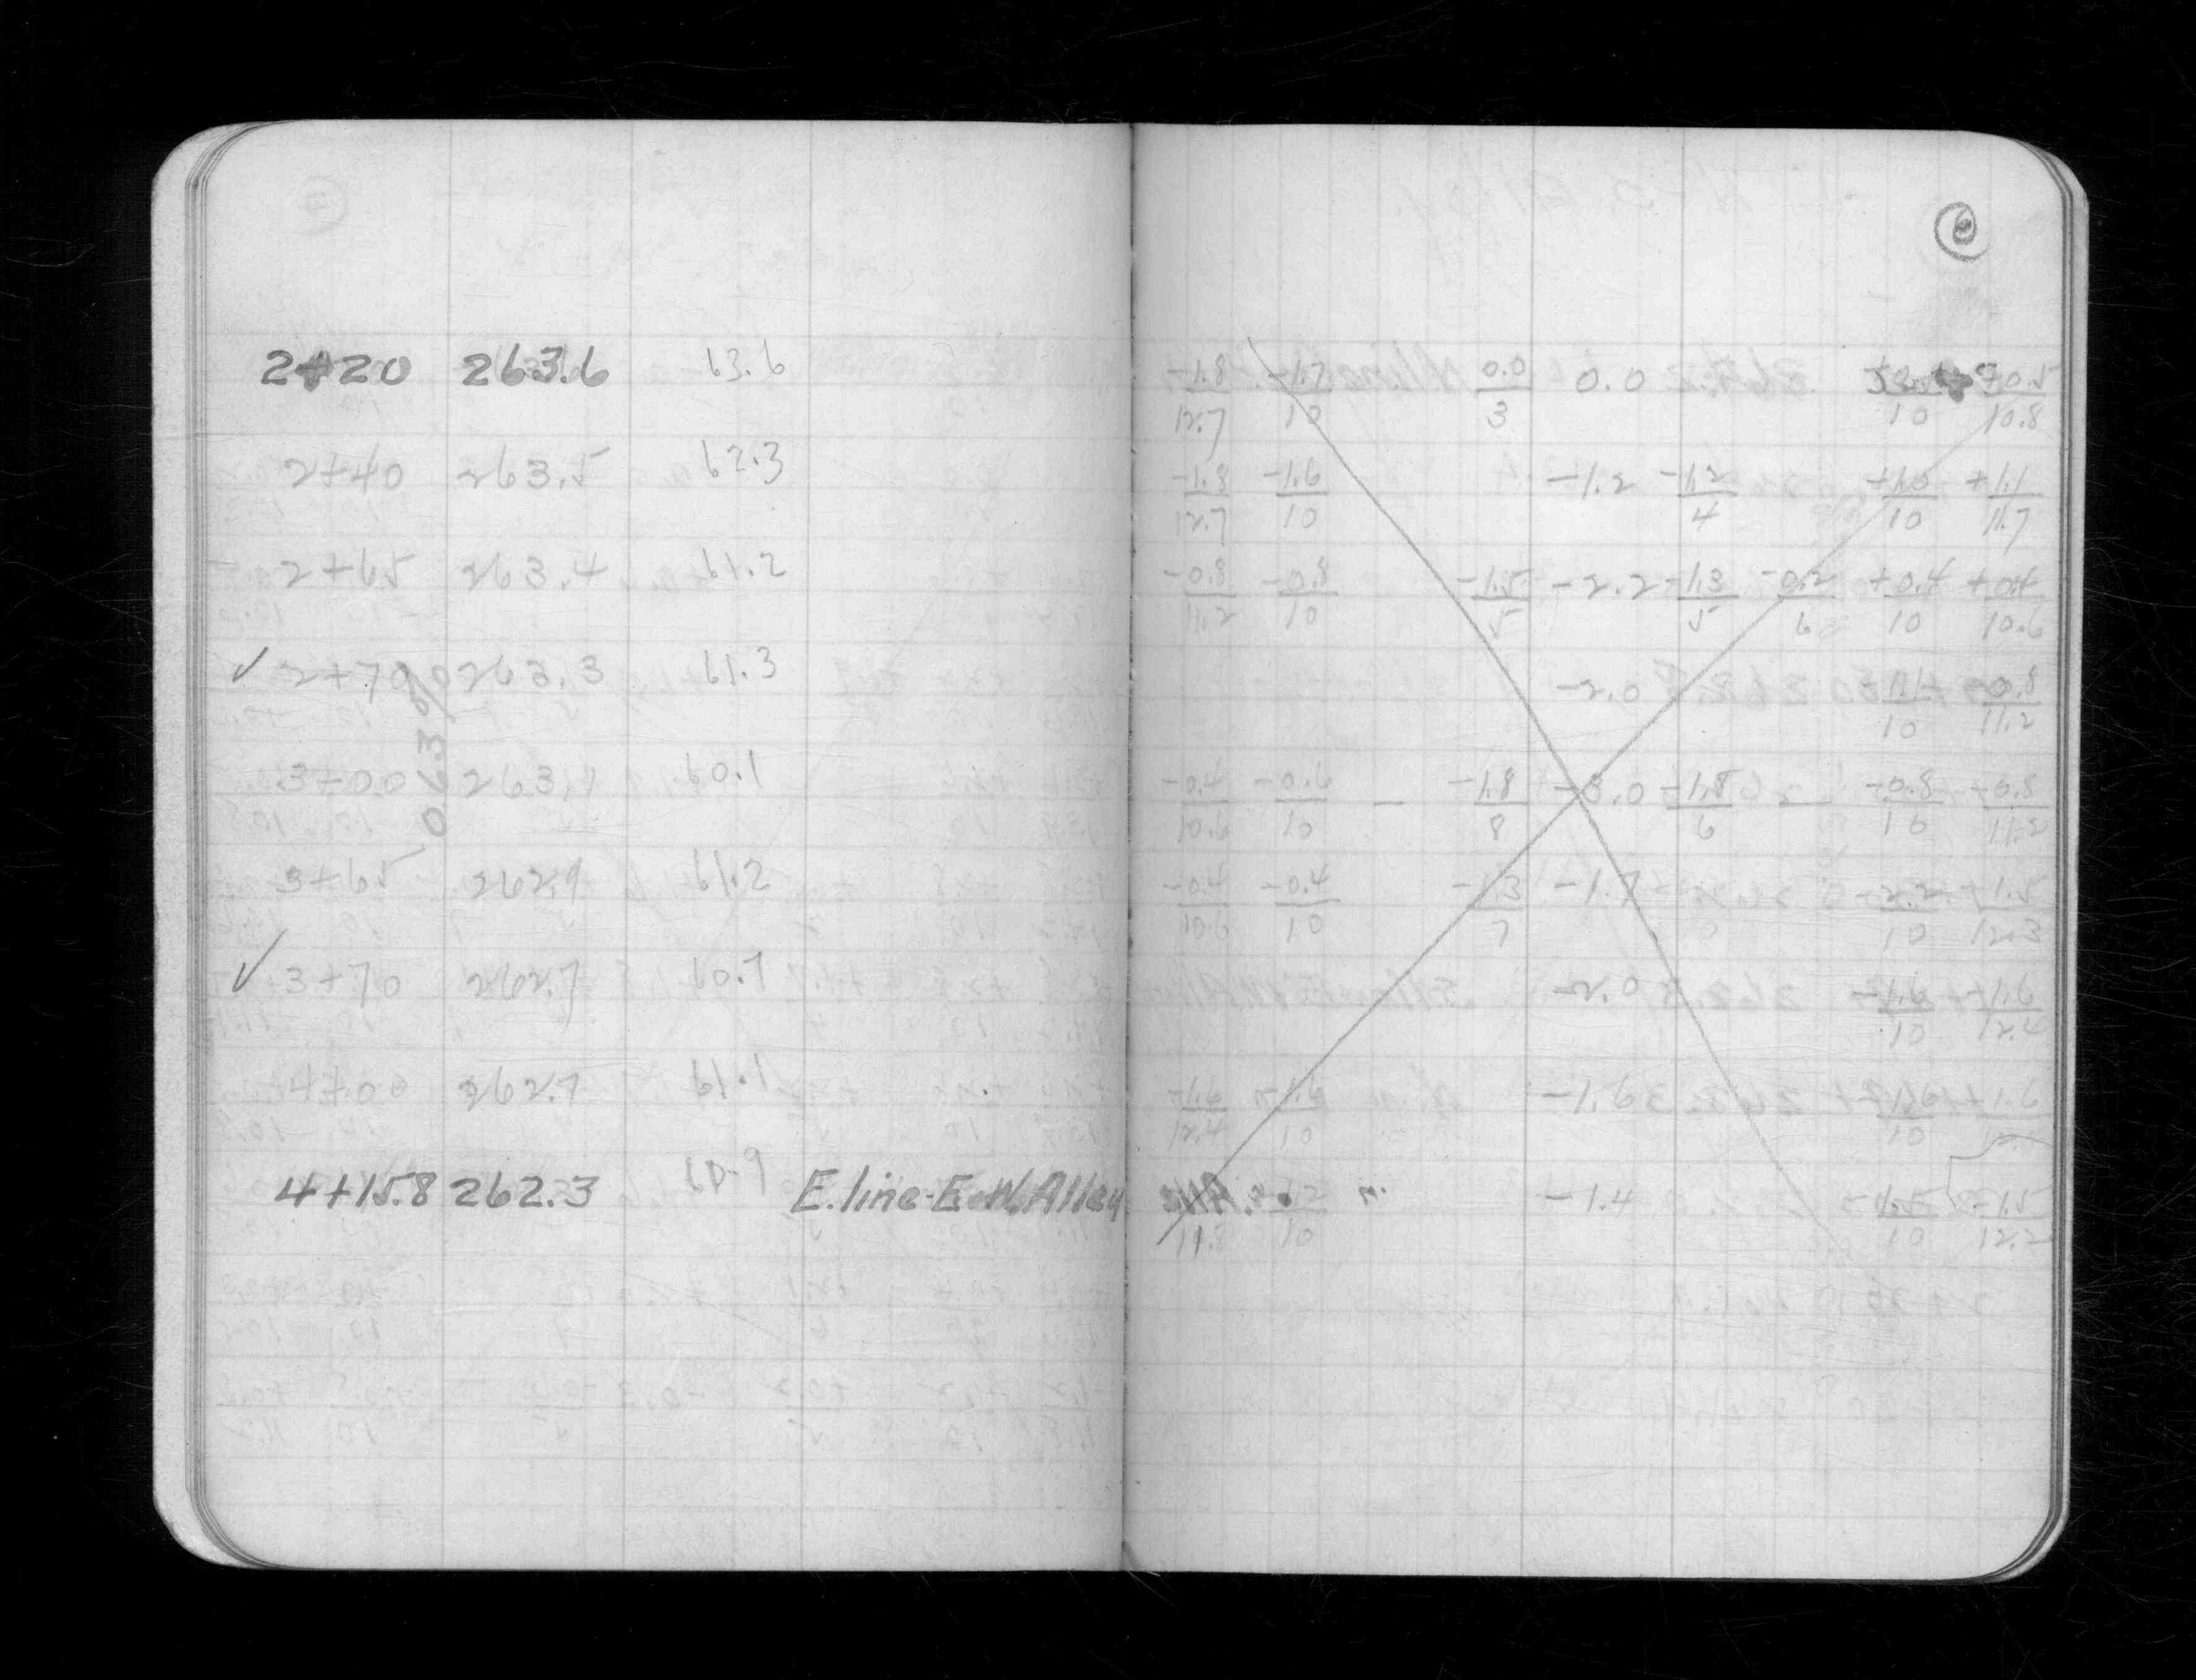 6
2+20 263.6 63.6 -1.8 -1.7 0.0 0.0
12.7 10 3 10 10.8
2+40 263.5 62.3 -1.8 -1.6 -1.2 -1.2 +1.0 +1.1
12.7 10 4 10 11.7
2+65 263.4 61.2 -0.8 -0.8 -1.5 -2.2 -1.3 -0.2 +0.4 +0.4
11.2 10 5 5 6 10 10.6
✓ 2+70 263.3 61.3 -2.0 -1.1 -0.8
10 11.2
0.63%
3+00 263.1 60.1 -0.4 -0.6 -1.8 -3.0 -1.8 -0.8 -0.8
10.6 10 8 6 10 11.2
3+65 262.9 61.2 -0.4 -0.4 -1.3 -1.7 -2.2 -1.5
10.6 10 7 10 12.3
✓ 3+70 262.7 60.7 -2.0 -1.6 -1.6
10 12.4
4+00 262.7 61.1 -1.6 -1.6 -1.6 -1.6 -1.6
12.4 10 10
4+15.8 262.3 60.9 E.line-E.W.Alley -1.4 -1.5 -1.5
11.8 10 10 12.2